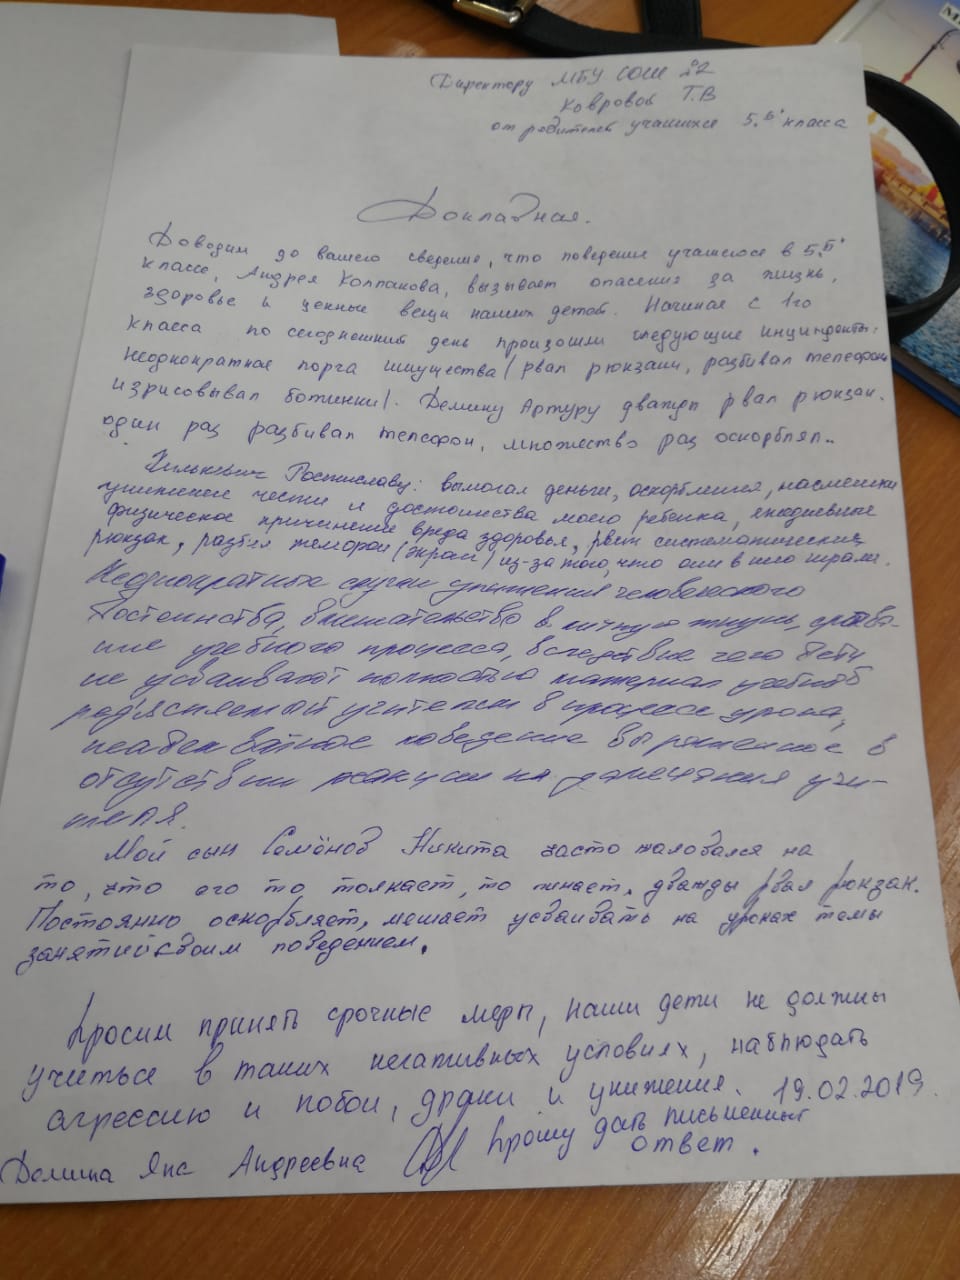 Директору МБУ СОШ №2
Ковровой Т.В
от родителей учащихся 5 "Б" класса
Докладная.
Доводим до вашего сведения, что поведение учащегося в 5 "Б"
классе, Андрея Колпакова, вызывает опасения за жизнь,
здоровье и ценные вещи наших детей. Начиная с 1го
класса по сегодняшний день произошли следующие инцинденты:
Неоднократная порча имущества (рвал рюкзаки, разбивал телефоны
изрисовывал ботинки). Демину Артуру дважды рвал рюкзак.
один раз разбивал телефон, множество раз оскорблял..
Ростиславу: вымогал деньги, оскорбления, насмешки
унижение чести и достоинства моего ребенка, ежедневное
физическое причинение вреда здоровья, рвет систематически
рюкзак, разбил телефон (экран) из-за того, что они в него играли.
Неоднократные случаи унижения человеческого
достоинства, вмешательство в личную жизнь, срыва-
ние учебного процесса, вследствие чего дети
не усваивают полностью материал учебный
разъясняемый учителем в процессе урока,
неадекватное поведение выраженное в
отсутствии реакции на замечания учи-
теля.
Мой сын Семёнов Никита часто жаловался на
то, что его то толкает, то пинает. дважды рвал рюкзак.
Постоянно оскорбляет, мешает усваивать на уроках темы
занятий своим поведением.
Просим принять срочные меры, наши дети не должны
учиться в таких негативных условиях, наблюдать
агрессию и побои, драки и унижения. 19.02.2019.
Прошу дать письменный
ответ.
Демина Яна Андреевна